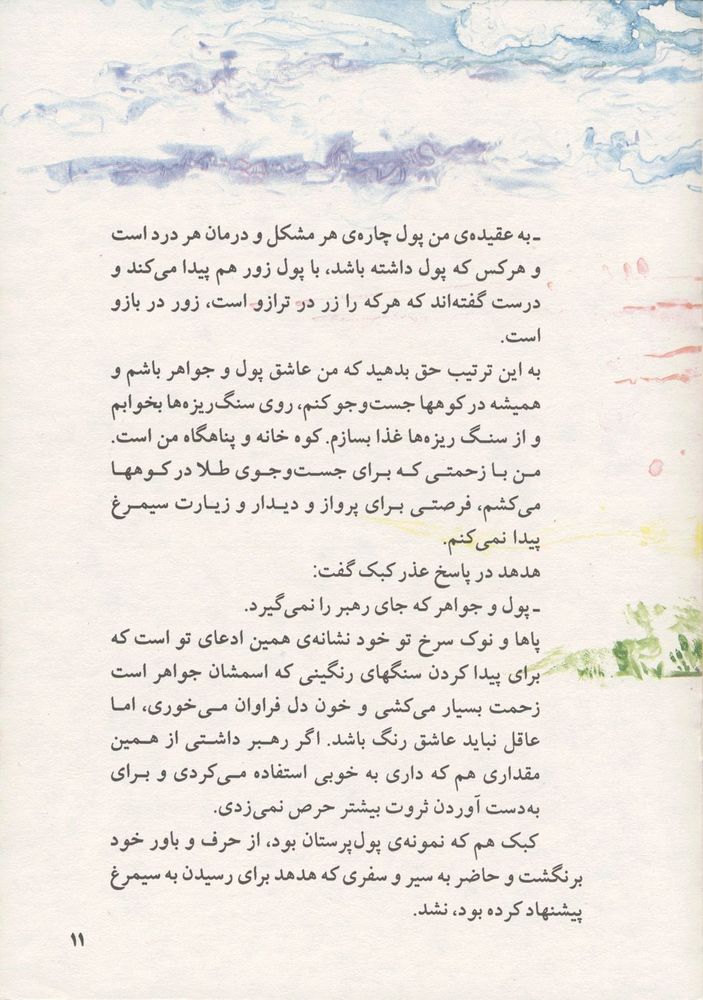 ـ به عقیده‌ی من پول چاره‌ی هر مشکل و درمان هر درد است
و هرکس که پول داشته باشد، با پول زور هم پیدا می‌کند و
درست گفته‌اند که هرکه را زر در ترازو است، زور در بازو
است.
به این ترتیب حق بدهید که من عاشق پول و جواهر باشم و
همیشه در کوهها جست‌وجو کنم، روی سنگ‌ریزه‌ها بخوابم
و از سنگ ریزه‌ها غذا بسازم. کوه خانه و پناهگاه من است.
من با زحمتی که برای جست‌وجوی طلا در کوهها
می‌کشم، فرصتی برای پرواز و دیدار و زیارت سیمرغ
پیدا نمی‌کنم.
هدهد در پاسخ عذر کبک گفت:
ـ پول و جواهر که جای رهبر را نمی‌گیرد.
پاها و نوک سرخ تو خود نشانه‌ی همین ادعای تو است که
برای پیدا کردن سنگهای رنگینی که اسمشان جواهر است
زحمت بسیار می‌کشی و خون دل فراوان می‌خوری، اما
عاقل نباید عاشق رنگ باشد. اگر رهبر داشتی از همین
مقداری هم که داری به خوبی استفاده می‌کردی و برای
به‌دست آوردن ثروت بیشتر حرص نمی‌زدی.
کبک هم که نمونه‌ی پول‌پرستان بود، از حرف و باور خود
برنگشت و حاضر به سیر و سفری که هدهد برای رسیدن به سیمرغ
پیشنهاد کرده بود، نشد.
۱۱